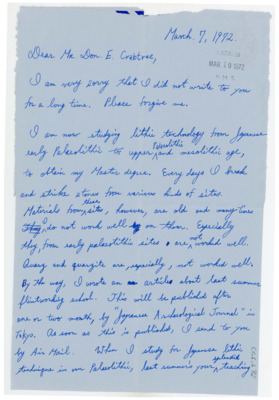 March 7, 1972.
MAR 10 1972
Dear Mr. Don E. Crabtree,
I am very sorry that I did not write to you
for a long time. Please forgive me.
I am now studying lithic technology from Japanese
early Palaeolithic to upper Palaeolithic and mesolithic age,
to obtain my Master degree. Every days I break
and strike stones from various kinds of sites.
Materials from these sites, however, are old and many times
do not work well on them. Especially
they, from early palaeolithic sites are not worked well.
and quarzite are, especially, not worked well.
By the way, I wrote an articles about last summer
flintworking school. This will be published after
one or two month, by "Japanese Archaeological Journal" in
Tokyo. As soon as this is published, I send to you
by Air Mail. When I study for Japanese lithic
technique in our Palaeolithic, last summer's your splendid teaching